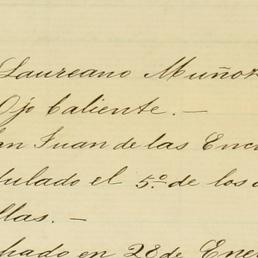 Laureano Muñoz
Ojo Caliente. —
Juan de las Enci
tulado el 5º de los
llas. —
chado en 28 de Ene